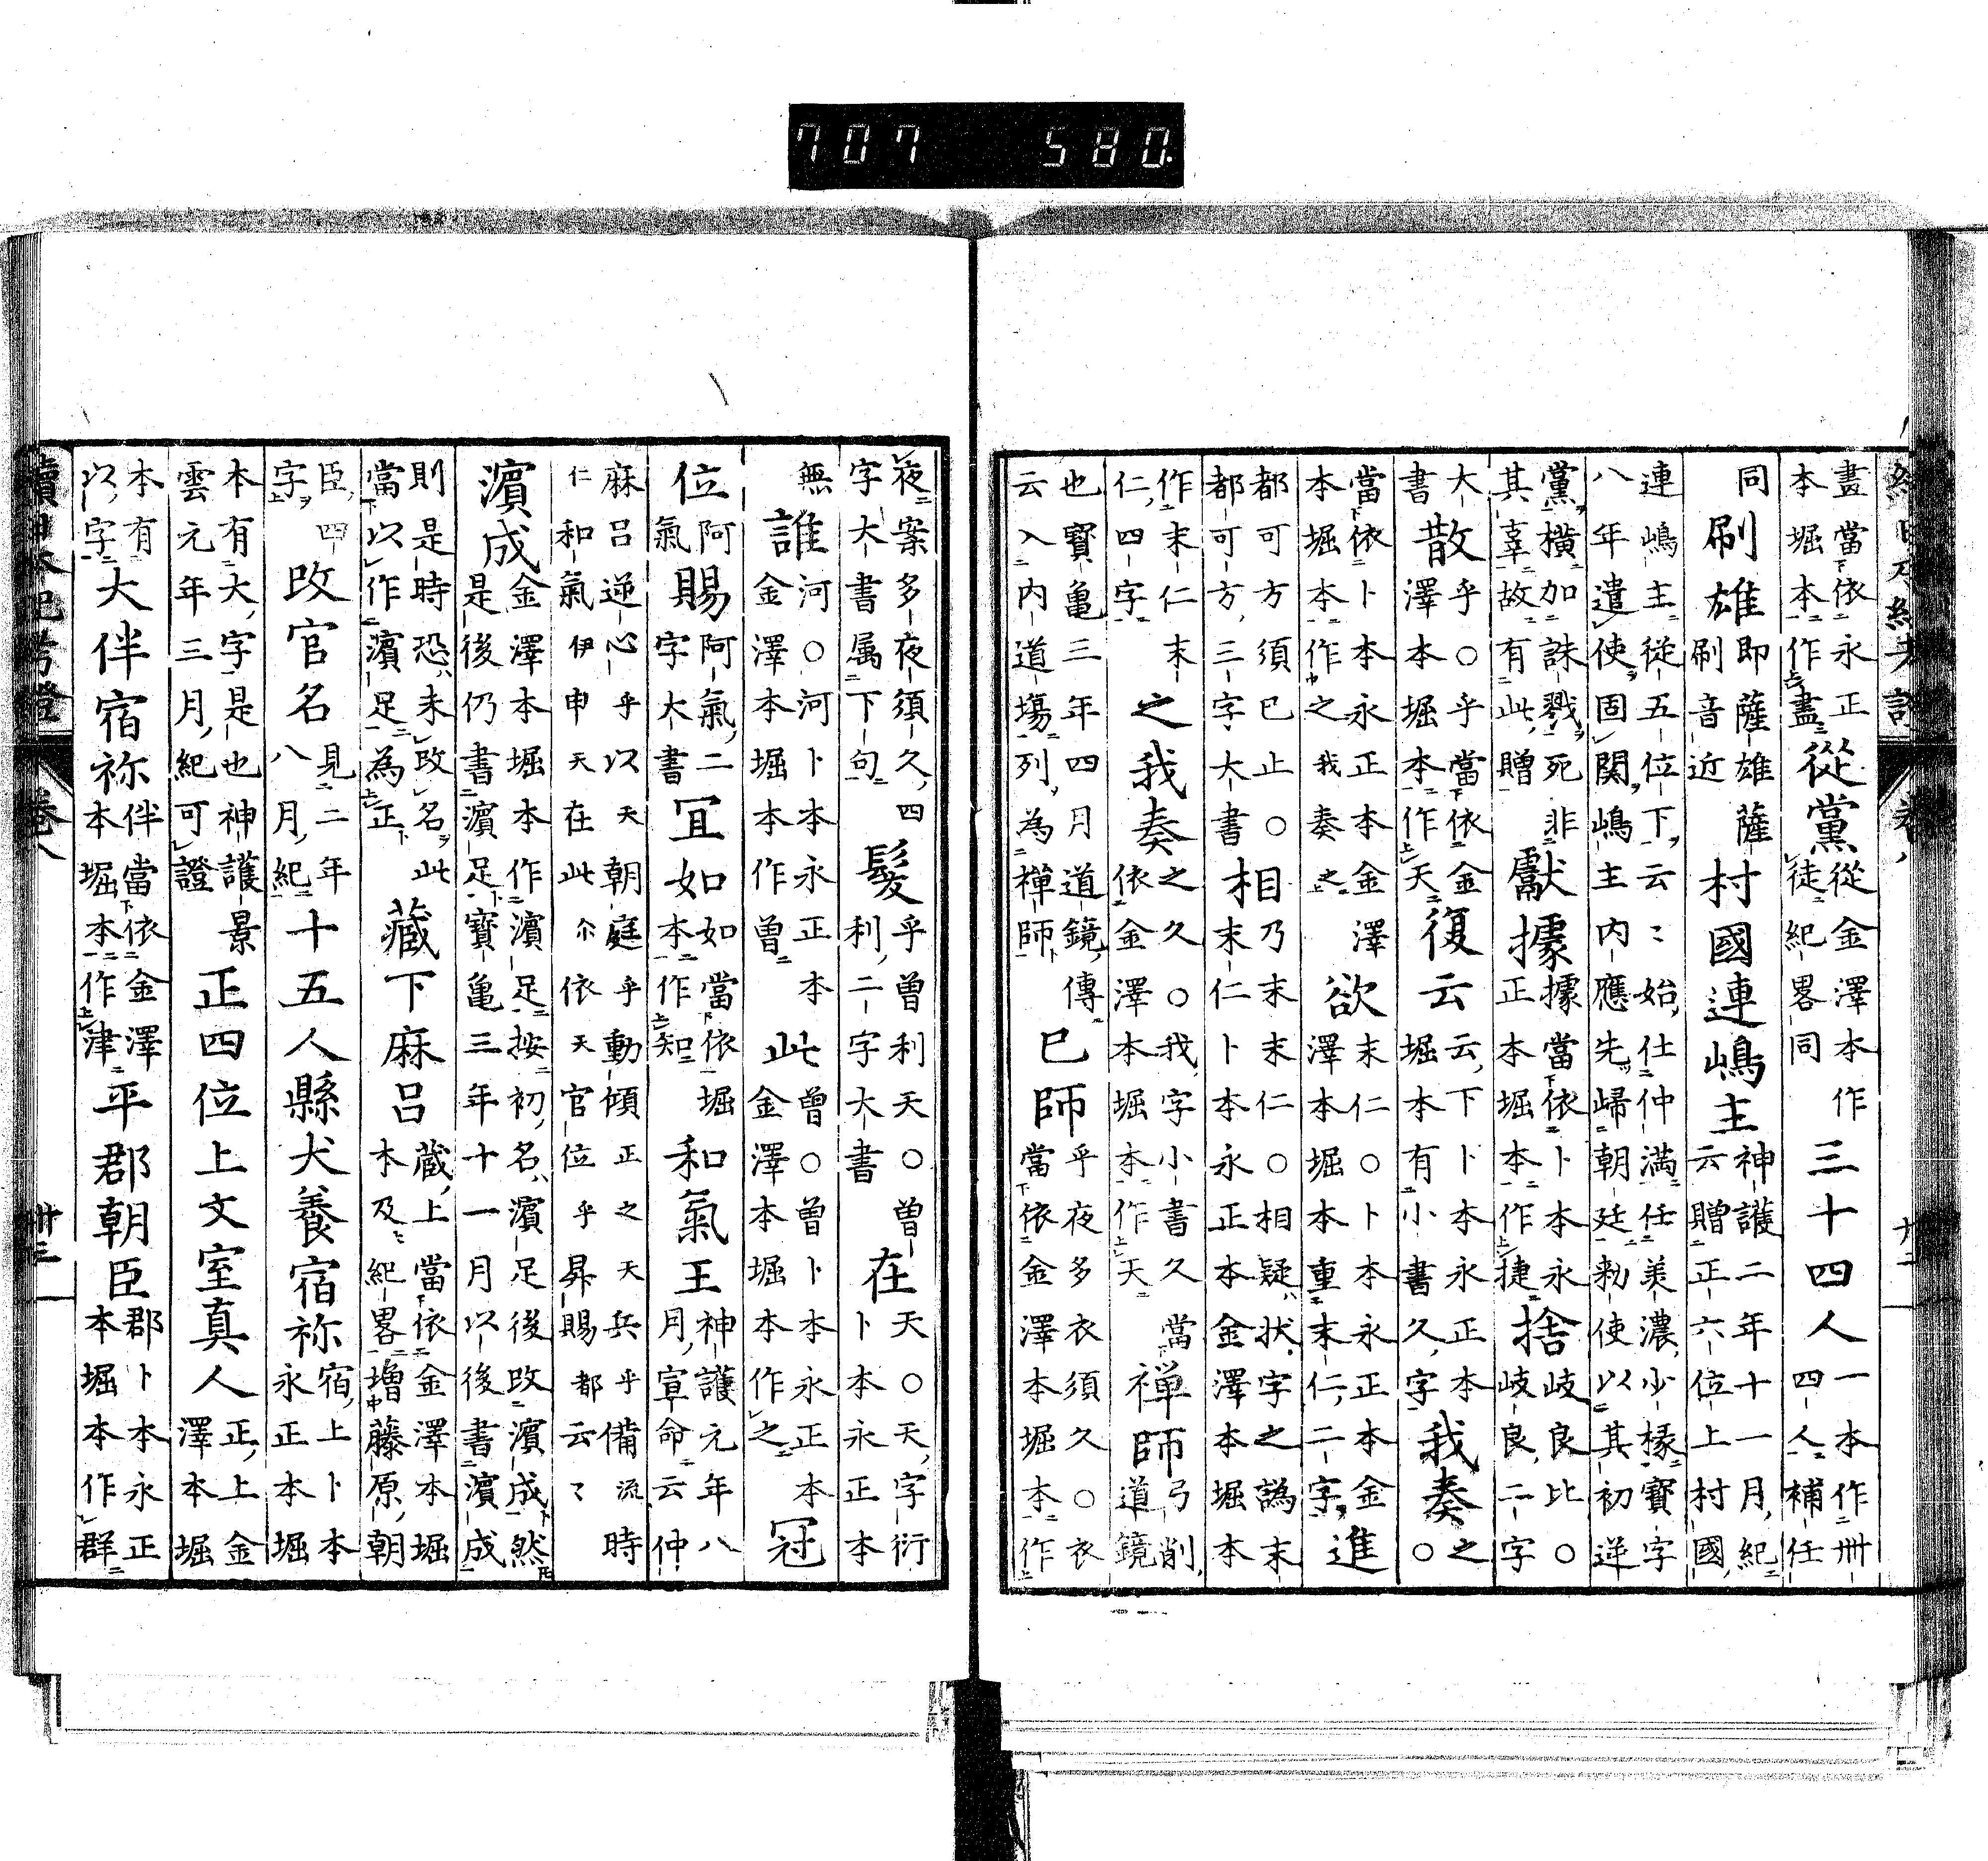 707 580.
畫當依永正
本堀本作盡
從黨
從金澤本作
徒紀畧同
三十四人
一本作卌
四人補任
同
刷雄
即薩雄薩
刷音近
村國連嶋主
神護二年十一月紀
云贈正六位上村國
連嶋主從五位下云〻始仕仲滿任美濃少椽寶字
八年遣使固関嶋主内應先歸朝廷勅使以其初逆
黨橫加誅戮死非
其辜故有此贈
獻據
據當依卜本永
正本堀本作捷
捨
岐良比○
岐良二字
大
書
散
乎○乎當依金
澤本堀本作天
復云
云下卜本永正本
堀本有小書久字
我奏
之
○
當依卜本永正本金澤
本堀本作之我奏之
欲
末仁○卜本永正本金
澤本堀本重末仁二字
進
都可方須已止○
都可方三字大書
相
乃末末仁○相疑狀字之譌末
末仁卜本永正本金澤本堀本
作末仁末
仁四字
之我奏
之久○我字小書久當
依金澤本堀本作天
禅師
弓削
道鏡
也寶亀三年四月道鏡傳
云入内道塲列為禅師
已師
乎夜多衣須久○衣
當依金澤本堀本作
夜案多夜須久四
字大書属下句
髮
乎曽利天○曽
利二字大書
在
天○天字衍
卜本永正本
無
誰
河○河卜本永正本
金澤本堀本作曽
此
曽○曽卜本永正本
金澤本堀本作之
冠
位
阿
氣
賜
阿氣二
字大書
冝如
如當依堀
本作知
和氣王
神護元年八
月宣命云仲
麻呂逆心乎以天朝庭乎動傾正之天兵乎備流時
仁和氣伊申天在此尓依天官位乎昇賜都云〻
濵成
金澤本堀本作濵足按初名濵足後改濵成然
是後仍書濵足寶亀三年十一月以後書濵成
則是時恐未改名此
當以作濵足為正
藏下麻呂
蔵上當依金澤本堀
本及紀畧増藤原朝
臣四
字
改官名
見二年
八月紀
十五人縣犬養宿祢
宿上卜本
永正本堀
本有大字是也神護景
雲元年三月紀可證
正四位上文室真人
正上金
澤本堀
本有
以字
大伴宿祢
伴當依金澤
本堀本作津
平郡朝臣
郡卜本永正
本堀本作群
續日本紀考證 卷八 卅三